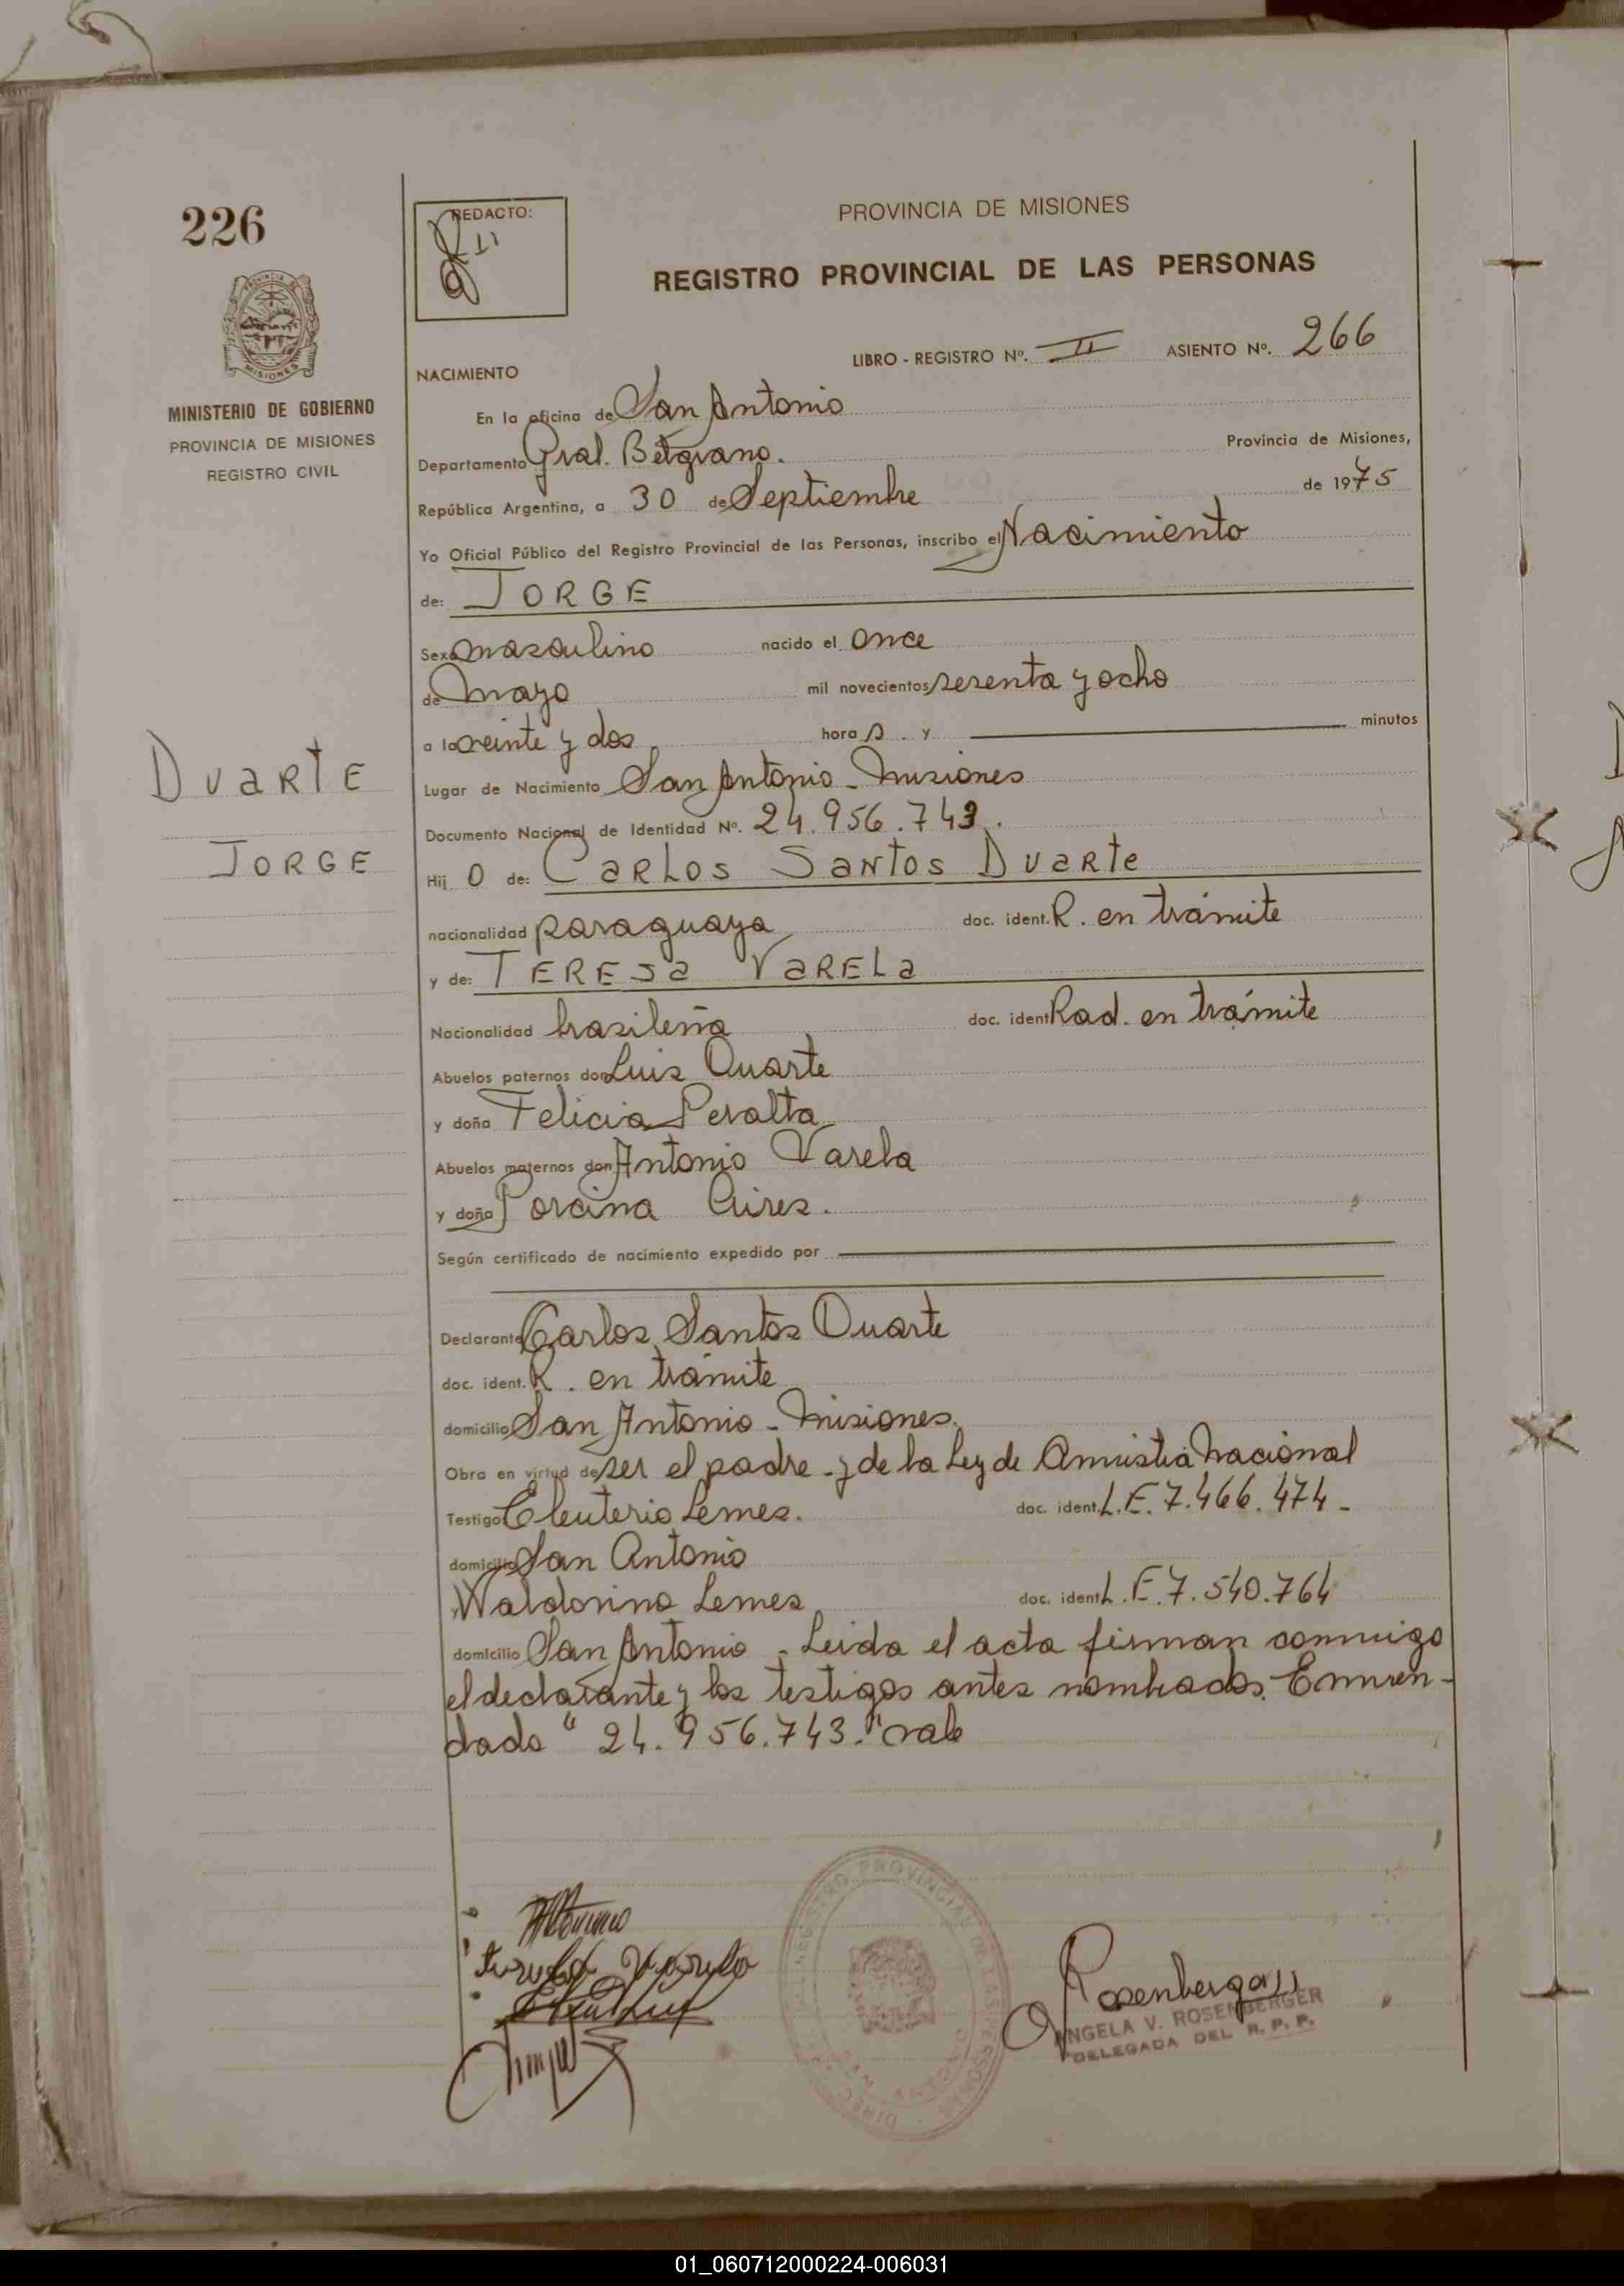 226
REDACTO:
PROVINCIA DE MISIONES
REGISTRO PROVINCIAL DE LAS PERSONAS
MINISTERIO DE GOBIERNO
PROVINCIA DE MISIONES
REGISTRO CIVIL
LIBRO - REGISTRO Nº. II ASIENTO Nº. 266
NACIMIENTO
En la oficina de San Antonio
Departamento Gral. Belgrano. Provincia de Misiones,
República Argentina, a 30 de Septiembre de 1975
Yo Oficial Público del Registro Provincial de las Personas, inscribo el Nacimiento
de: JORGE
Sexo masculino nacido el once
de mayo mil novecientos sesenta y ocho
a la veinte y dos hora s. y minutos
DUARTE
JORGE
Lugar de Nacimiento San Antonio - Misiones
Documento Nacional de Identidad Nº. 24.956.743.
Hij o de: CARLOS SANTOS DUARTE
nacionalidad paraguaya doc. ident. R. en trámite
y de: TERESA VARELA
Nacionalidad brasileña doc. ident Rad. en trámite
Abuelos paternos don Luis Duarte
y doña Felicia Peralta
Abuelos maternos don Antonio Varela
y doña Porcina Aires.
Según certificado de nacimiento expedido por
Declarante Carlos Santos Duarte
doc. ident. R. en trámite
domicilio San Antonio - Misiones.
Obra en virtud de ser el padre - y de la Ley de Amnistia Nacional
Testigos Eleuterio Lemes. doc. ident. L.E. 7.466.474 -
domicilio San Antonio
Waldorino Lemes doc. ident L.E. 7.540.764
domicilio San Antonio - Leida el acta firman conmigo
el declarante y los testigos antes nombrados. Enmen-
dado "24.956.743." vale
Rosenberger
ANGELA V. ROSENBERGER
DELEGADA DEL R. P. P.
01_060712000224-006031